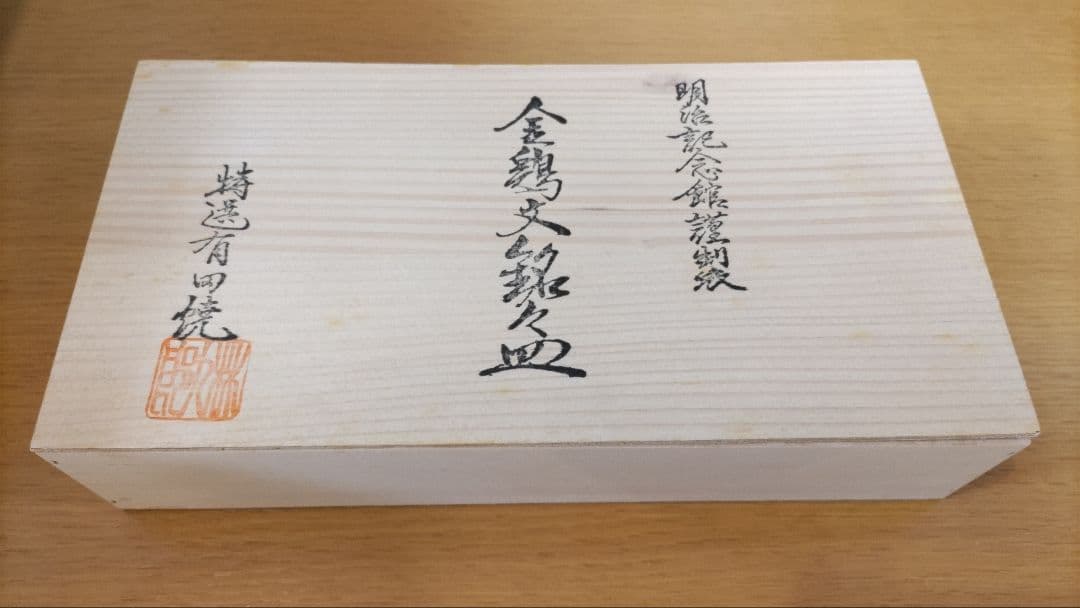 明治記念館謹製
金鶏文銘々皿
特選有田焼